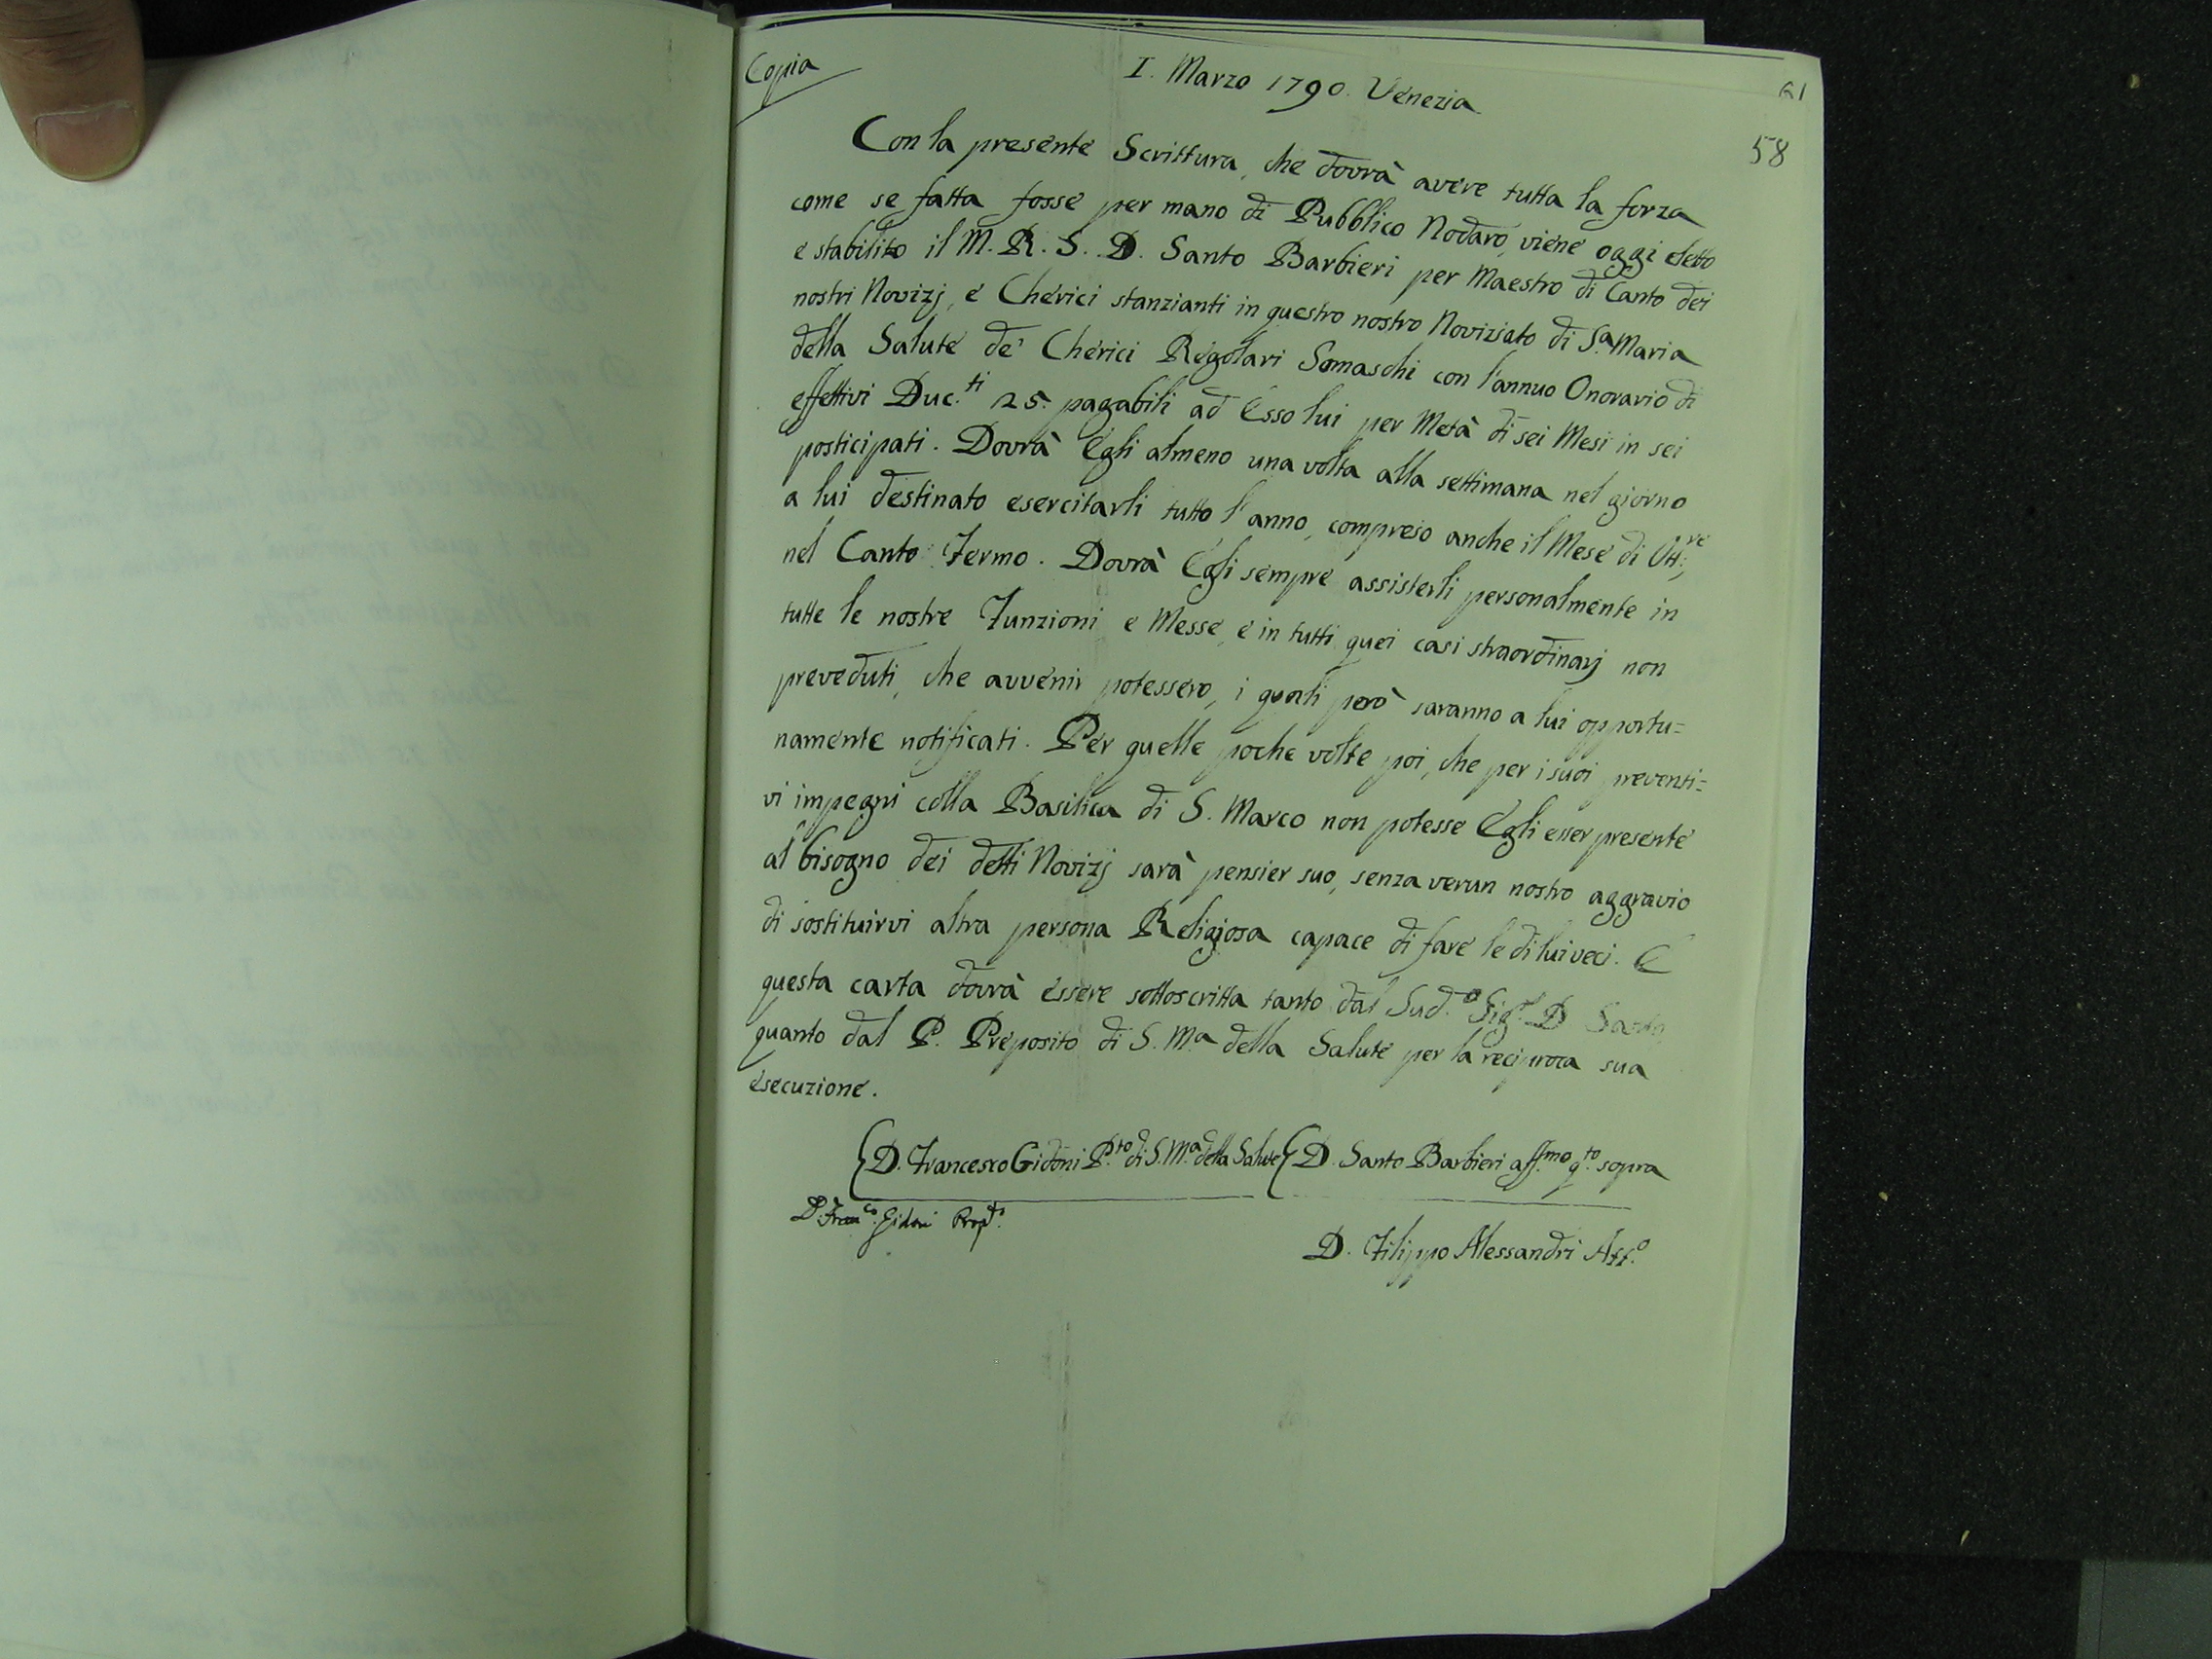 Copia
I. Marzo 1790. Venezia
61
58
Con la presente Scrittura, che dovrà avere tutta la forza
come se fatta fosse per mano di Pubblico Nodaro, viene oggi eletto
e stabilito il M. R. S. D. Santo Barbieri per Maestro di Canto dei
nostri Novizj, e Cherici stanzianti in questro nostro Noviziato di S.a Maria
della Salute de' Cherici Regolari Somaschi con l'annuo Onorario di
effettivi Duc.ti 25. pagabili ad Esso lui per Metà di sei Mesi in sei
posticipati. Dovrà Egli almeno una volta alla settimana nel giorno
a lui destinato esercitarli tutto l'anno, compreso anche il Mese di Ott.re,
nel Canto Fermo. Dovrà Egli sempre assisterli personalmente in
tutte le nostre Funzioni e Messe, e in tutti quei casi straordinarj non
preveduti, che avvenir potessero, i quali però saranno a lui opportu=
namente notificati. Per quelle poche volte poi, che per i suoi preventi=
vi impegni colla Basilica di S. Marco non potesse Egli esser presente
al bisogno dei detti Novizj sarà pensier suo, senza verun nostro aggravio
di sostituirvi altra persona Religiosa capace di fare le di lui veci. E
questa carta dovrà essere sottoscritta tanto dal Sud.o Sig.r D Santo
quanto dal P. Preposito di S. M.a della Salute per la reciproca sua
esecuzione.
{D. Francesco Gidoni P.to di S. M.a della Salute {D. Santo Barbieri aff.mo q.to sopra
D. Fran.co Gidoni Prop.to
D. Filippo Alessandri Att.o